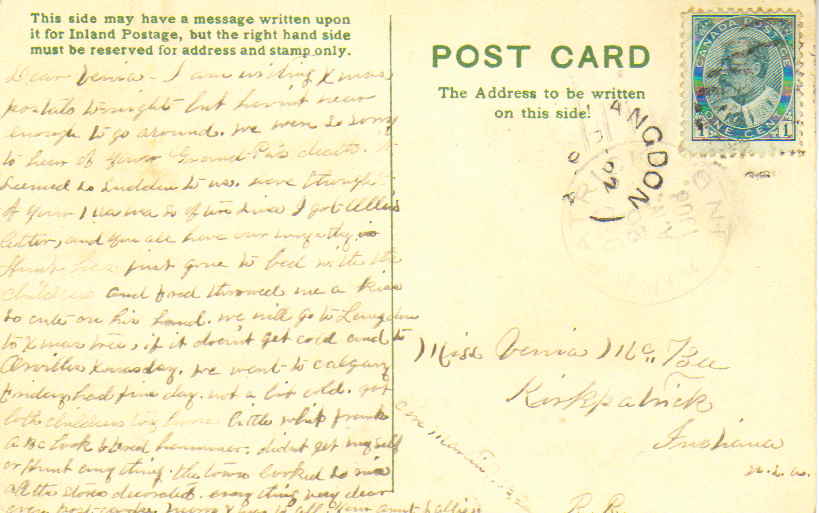 This side may have a message written upon
it for Inland Postage, but the right hand side
must be reserved for address and stamp only.
Dear Venia - I am writing Xmas
postals tonight but havn't near
enough to go around. we were so sorry
to hear of your Grand Pa's death. It
seemed so sudden to us. have thought
of your so often since I got
letter, and you all have our sympathy.
Hunt has just gone to bed with the
children and Fred throwed me a kiss
so cute on his hand. we will go to Langdon
to Xmas tree, if it doesn't get cold and to
Orvilles Xmas day. we went to Calgary
Friday had fine day. not a bit cold. got
both children toy horse little whip
a Bc book & Fred hammer. didnt get myself
or Hunt any thing. the town looked so nice
all the stores decorated. every thing very dear
even post-cards. to all. Your aunt
POST CARD
The Address to be written
on this side.
LANGDON
CANADA POSTAGE
ONE CENT
1 1
Miss Venia McBee
Kirkpatrick
Indiana
U.S.A.
R.R.